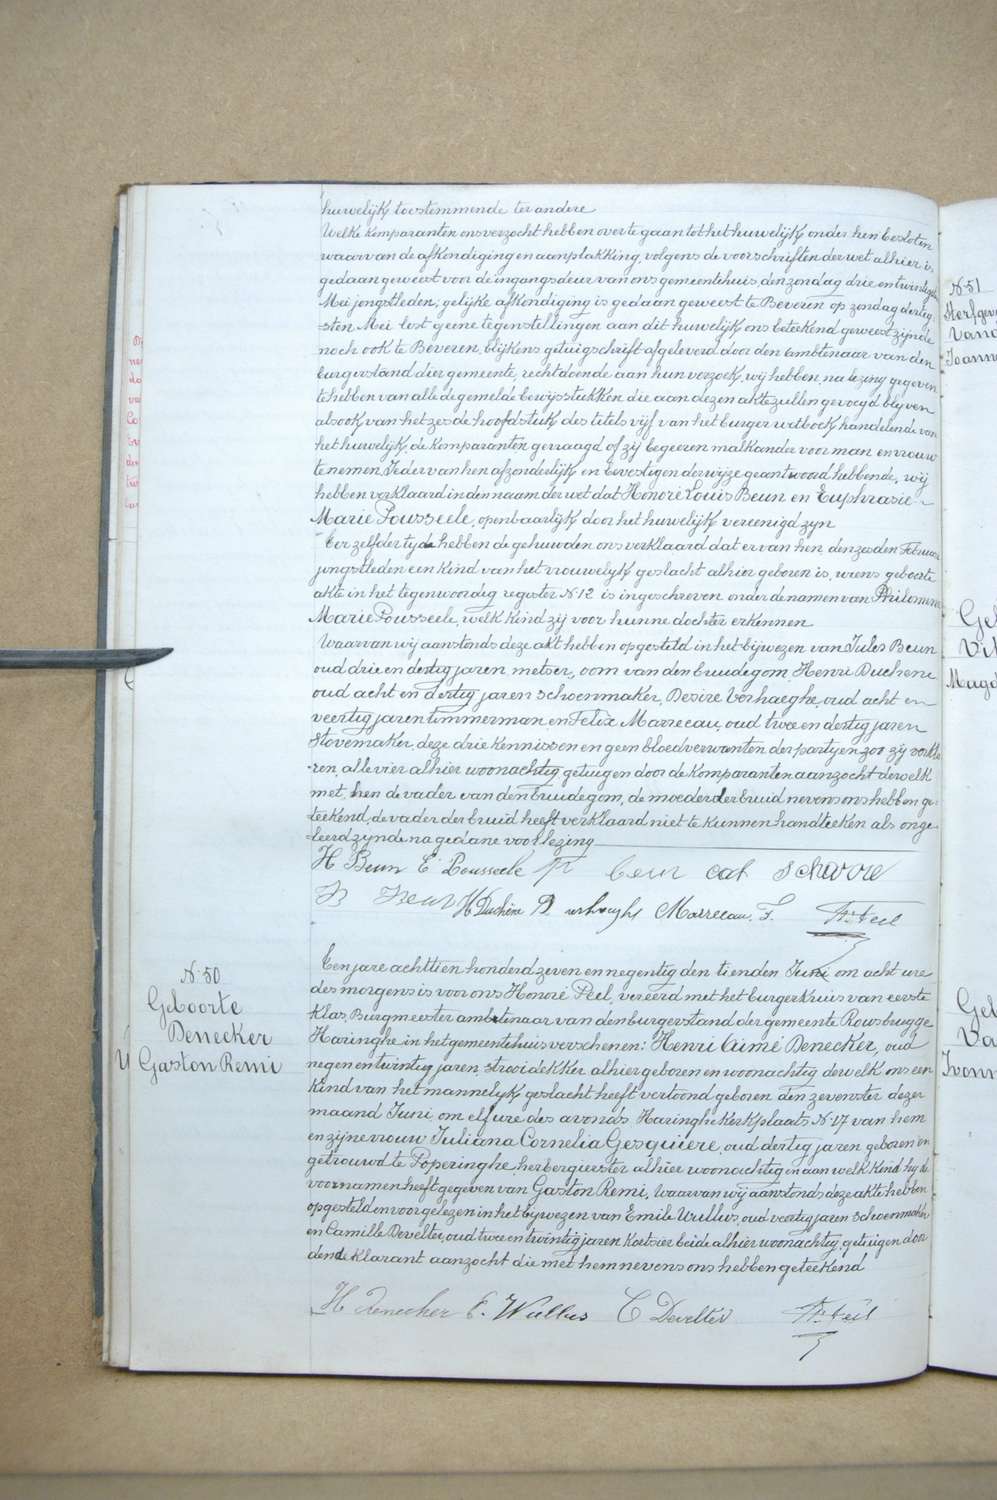 huwelijk toestemmende ter andere
Welke komparanten ons verzocht hebben over te gaan tot het huwelijk onder hen besloten
waarvan de afkondiging en aanplakking, volgens de voorschriften der wet alhier is
gedaan geweest voor de ingangsdeur van ons gemeentehuis, den zondag drie en twintigsten
Mei jongstleden; gelijke afkondiging is gedaan geweest te Beveren op zondag dertig
=sten Mei lest geene tegenstellingen aan dit huwelijk ons beteekend geweest zijnde
noch ook te Beveren, blijkens getuigschrift afgeleverd door den ambtenaar van den
burgerstand dier gemeente, rechtdoende aan hun verzoek, wij hebben, na lezing gegeven
te hebben van alle de gemelde bewijsstukken die aan dezen akte zullen gevoegd blyven
alsook van het zesde hoofdstuk des titels vijf van het burger wetboek handelende van
het huwelijk, de komparanten gevraagd of zij begeeren malkander voor man en vrouw
te nemen, ieder van hen afzonderlijk en bevestigen derwijze geantwoord hebbende, wij
hebben verklaard in den naam der wet dat Honoré Louis Beun en Euphrasie
Marie Pousseele, openbaarlijk door het huwelijk vereenigd zyn
Ter zelfder tyde hebben de gehuwden ons verklaard dat er van hen, den zesden Februari
jongstleden een kind van het vrouwelyk geslacht alhier geboren is, wiens geboorte
akte in het tegenwoordig register N. 12 is ingeschreven onder de namen van Philomene
Marie Pousseele, welk kind zij voor hunne dochter erkennen
Waarvan wij aanstonds deze akt hebben opgesteld in het bijwezen van Jules Beun
oud drie en dertig jaren metser, oom van den bruidegom, Henri Duchene
oud acht en dertig jaren schoenmaker, Desire Verhaeghe, oud acht en
veertig jaren timmerman en Felix Marrecau, oud twee en dertig jaren
stovemaker, deze drie kennissen en geen bloedverwanten der partyen zoo zij verkla
=ren, alle vier alhier woonachtig getuigen door de komparanten aanzocht derwelk
met, hen de vader van den bruidegom, de moeder der bruid nevens ons hebben ge=
teekend, de vader der bruid heeft verklaard niet te kunnen handteeken als onge
=leerd zynde na gedane voorlezing
H Beun E Pousseele P beun cat scharre
J Beun H Duchêne D verhaeghe Marrecau. F. Hre. Peel
N. 50
Geboorte
Denecker
Gaston Remi
Een jare achttien honderd zeven en negentig den tienden Juni om acht ure
des morgens is voor ons Honoré Peel, vereerd met het burgerkruis van eerste
klas, Burgmeester ambtenaar van den burgerstand der gemeente Rousbrugge
Haringhe in het gemeentehuis verschenen: Henri Aimé Denecker, oud
negen en twintig jaren strooidekker alhier geboren en woonachtig derwelk ons een
kind van het mannelyk geslacht heeft vertoond geboren den zevensten dezer
maand Juni om elf ure des avonds Haringhe Kerkplaats N. 17 van hem
en zijne vrouw Juliana Cornelia Gesquiere, oud dertig jaren geboren en
getrouwd te Poperinghe herbergierster alhier woonachtig en aan welk kind hij de
voornamen heeft gegeven van Gaston Remi, Waarvan wij aanstonds deze akte hebben
opgesteld en voorgelezen in het bywezen van Emile Wullus, oud veertig jaren schoenmaker
en Camille Develter, oud twee en twintig jaren koetsier beide alhier woonachtig, getuigen door
den deklarant aanzocht die met hem nevens ons hebben geteekend
H Denecker E. Wullus C Develter Hre. Peel
N. 51